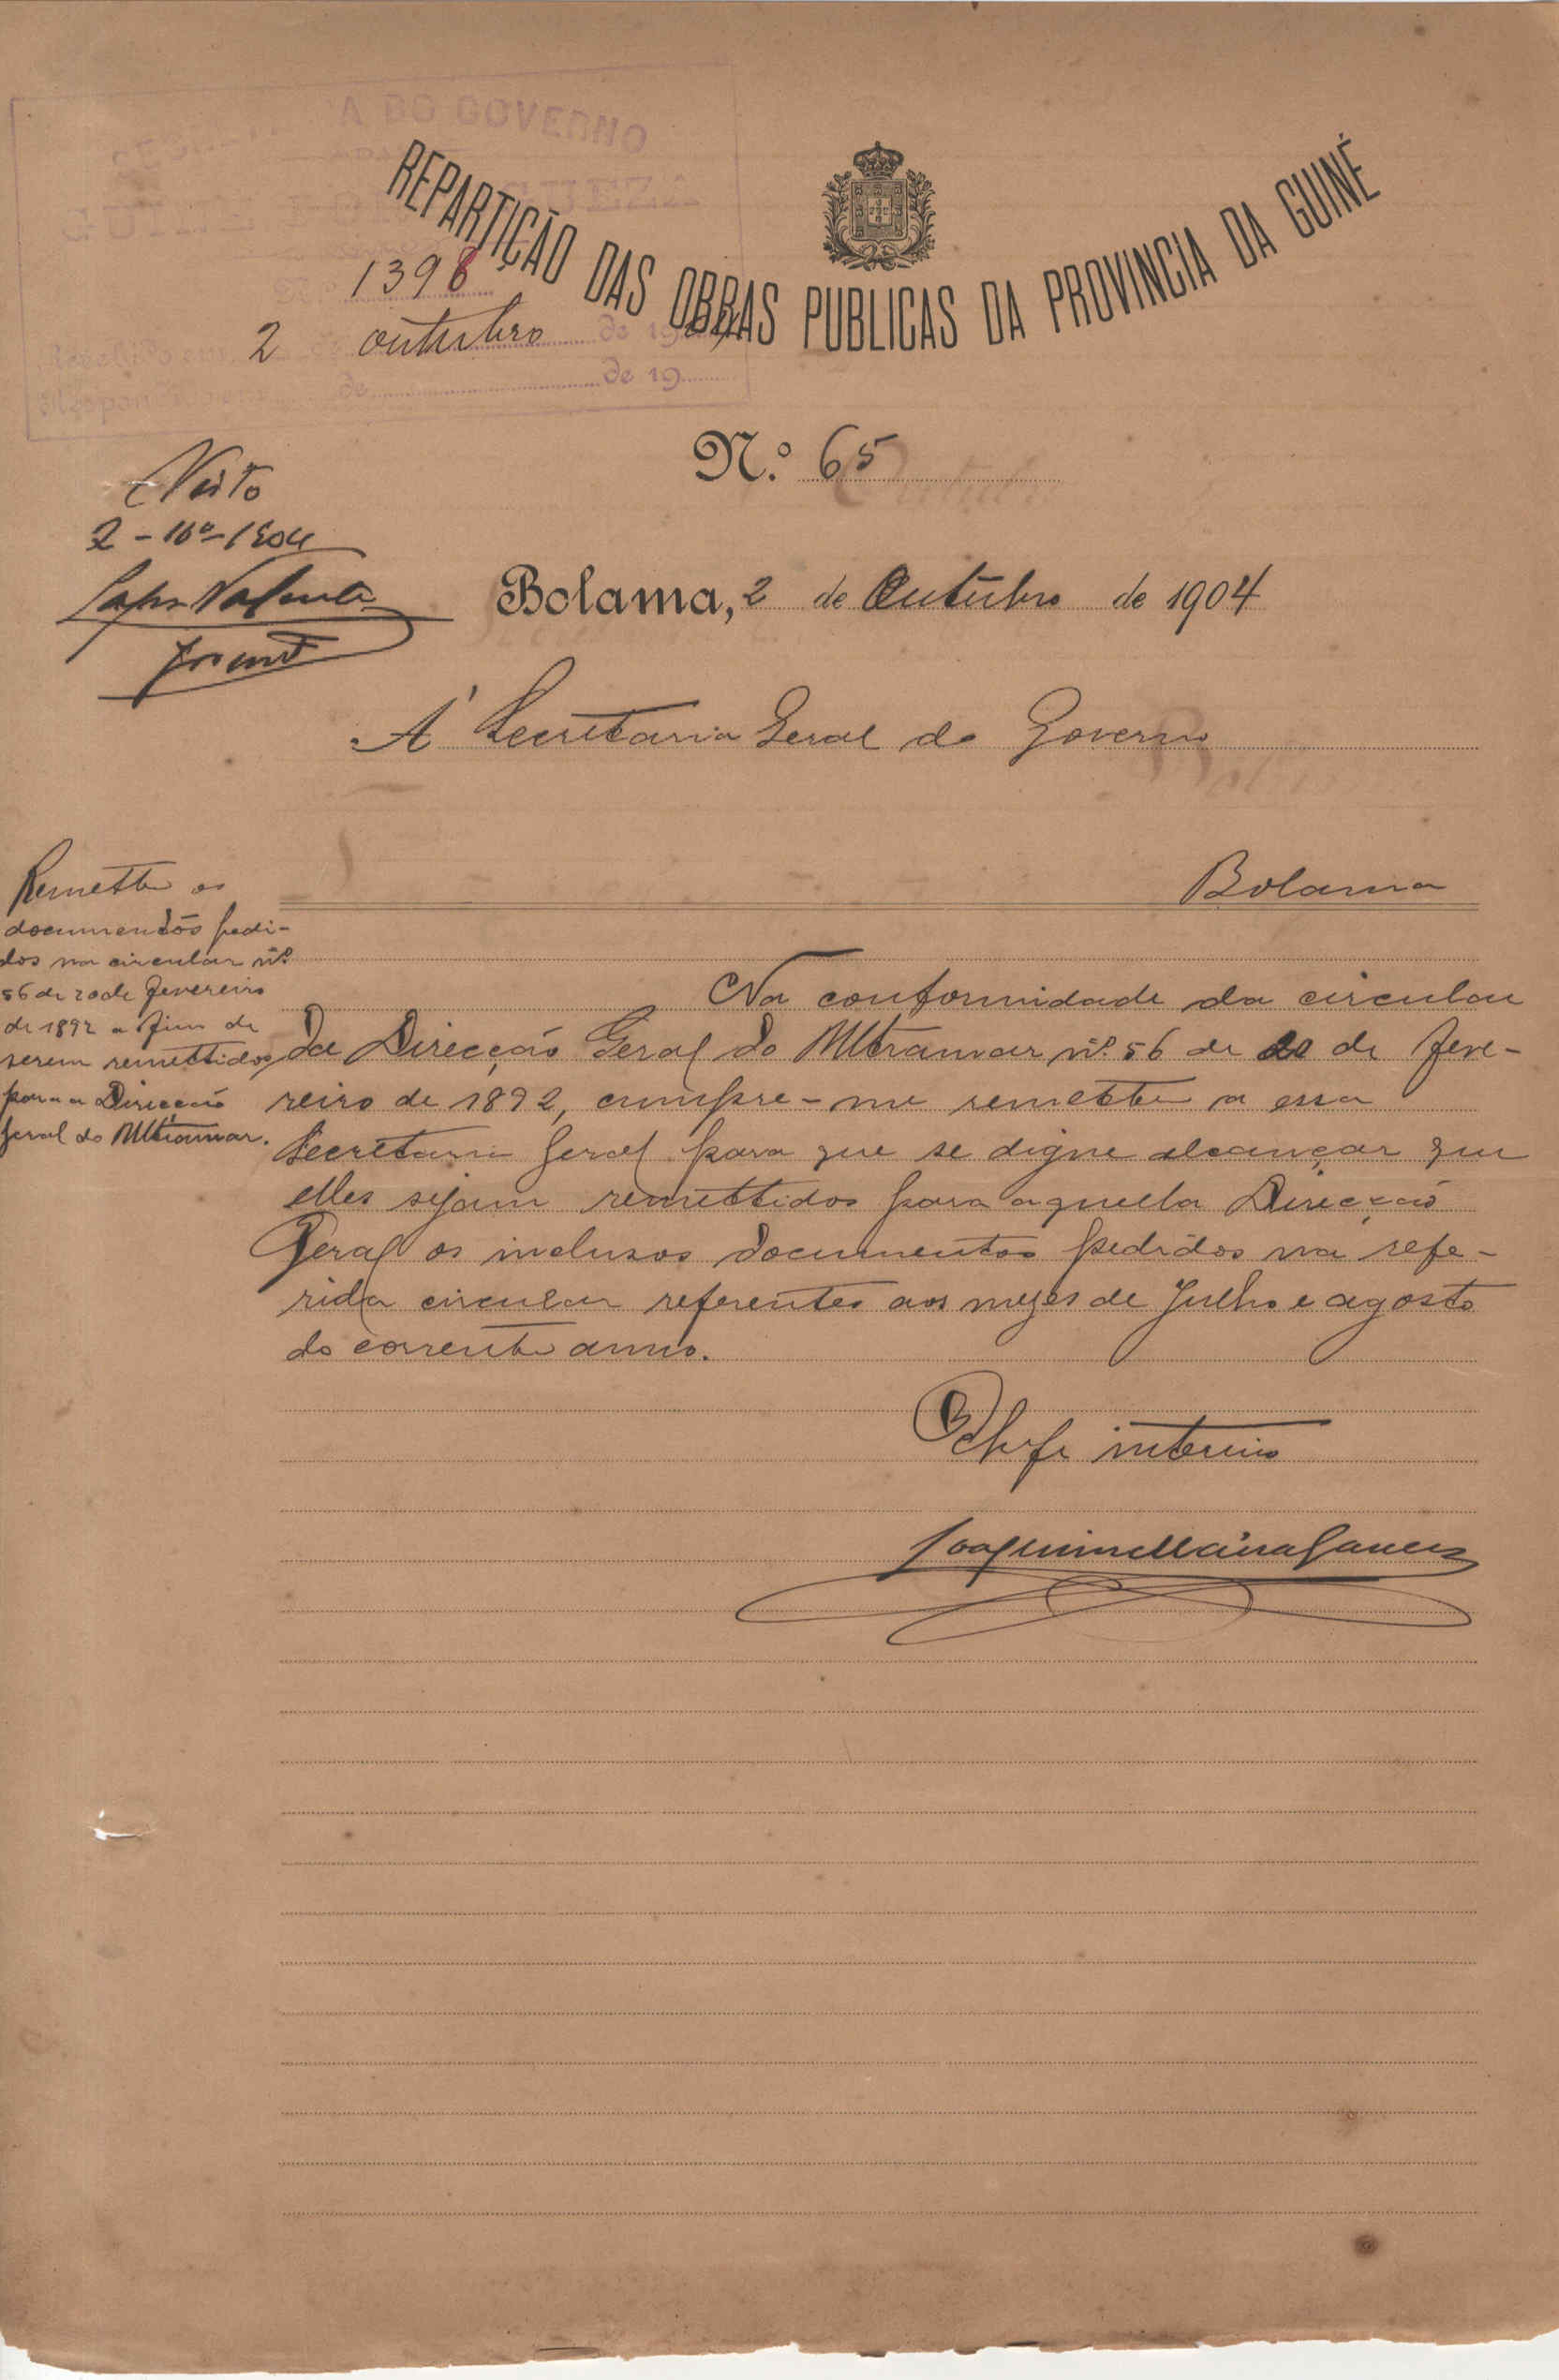 A DO GOVERNO
GUINÉ
1398
2 outubro de 19
de de 19
REPARTIÇÃO DAS OBRAS PUBLICAS DA PROVINCIA DA GUINÉ
N.º 65
Visto
2-10º-1904
Bolama, 2 de Outubro de 1904
Á Secretaria Geral do Governo
Bolama
Remette os
documentos pedi-
dos na circular nº
56 de 20 de Fevereiro
de 1892 a fim de
serem remettidos
para a Direcção
Geral do Ultramar.
Na conformidade da circular
da Direcção Geral do Ultramar nº 56 de 20 de Feve-
reiro de 1892, cumpre-me remetter a essa
Secretaria Geral para que se digne alcançar que
elles sejam remettidos para aquella Direcção
Geral os inclusos documentos pedidos na refe-
rida circular referentes aos mezes de Julho e agosto
do corrente anno.
O Chefe interino
Joaquim